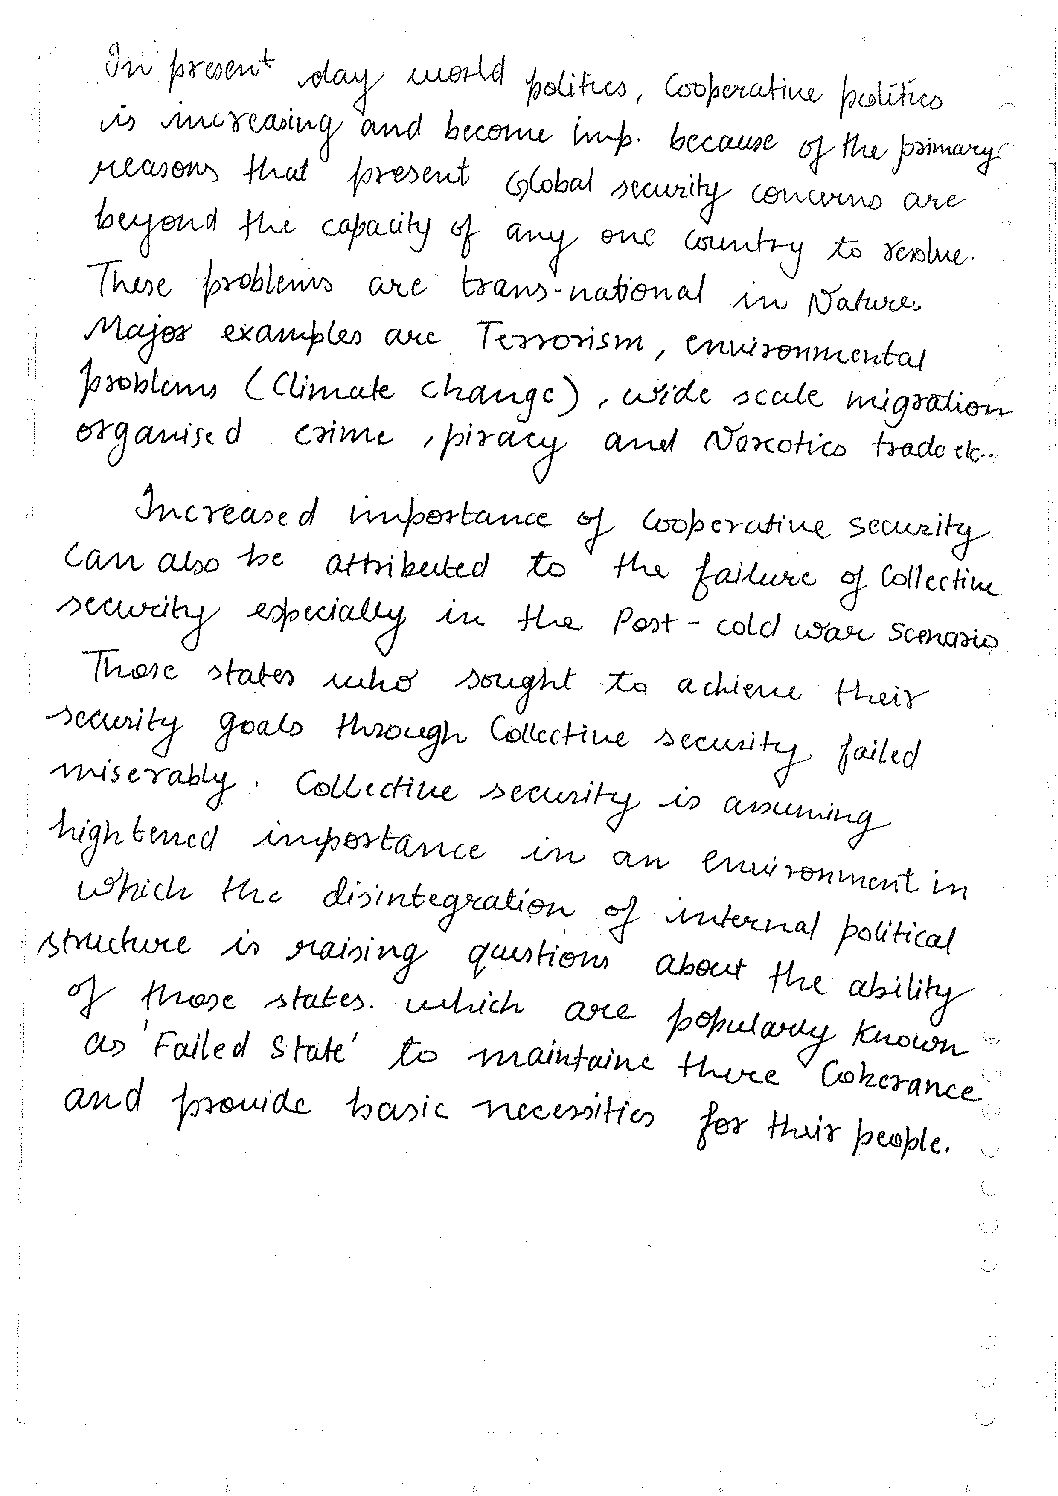 In present day world politics, Cooperative politics
is increasing and become imp. because of the primary
reasons that present Global security concerns are
beyond the capacity of any one country to resolve.
These problems are trans-national in Nature.
Major examples are Terrorism, environmental
problems (Climate change), wide scale migration
organised crime, piracy and Narcotics trade etc..
Increased importance of Cooperative security
can also be attributed to the failure of Collective
security especially in the Post-cold war scenario
Those states who sought to achieve their
security goals through Collective security failed
miserably. Collective security is assuming
hightened importance in an environment in
which the disintegration of internal political
structure is raising questions about the ability
of those states. which are popularly known
as 'Failed State' to maintaine there Coherance
and provide basic necessities for their people.